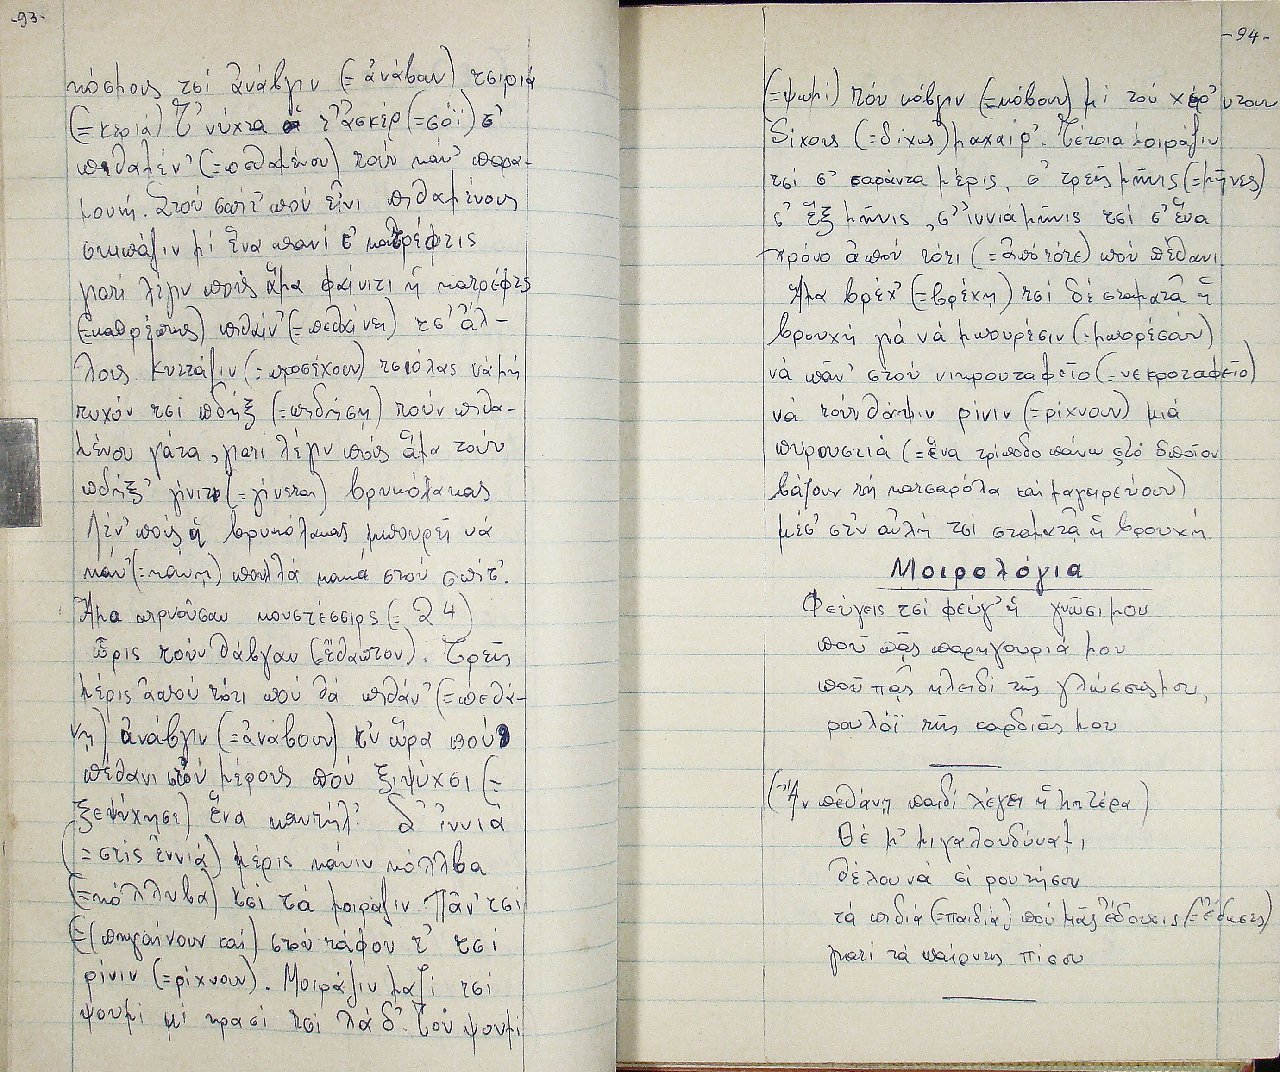 -93-
κόσμους τσί ἀνάβγιν (=ἀνάβαν) τσιριά
(=κεριά) Τ' νύχτα τ' ἀσκέρ (=σόϊ) σ'
πιθαμέν' (=πεθαμένου) τοὺν κάν' παρα-
μουνή. Στοὺ σπίτ' ποὺ εἶνι πιθαμένους
σκιπάζιν μὶ ἕνα πανί τ' κατρέφτις
γιατί λέγιν ποὺς ἅμα φαίνιτι ἡ κατρέφτς
(=καθρέπτης) πιθαίν' (=πεθαίνει) τσ' ἄλ-
λους Κυττάζιν (=προσέχουν) τσιόλας νά μή
τυχόν τσί πδήξ (=πηδήση) τούν πιθα-
μένου γάτα, γιατί λέγιν πούς ἅμα τούν
πδήξ' γίνιτι (=γίνεται) βρυκόλακας
Λέν' πούς ἡ βρυκόλακας μπουρεῖ νά
κάν' (=κάνη) πουλλά κακά στού σπίτ'.
Ἅμα πιρνοῦσαν κουστέσσιρς (=24)
ὧρις τούν θάβγαν (=ἔθαπτον). Τρεῖς
μέρις ἀπού τότι πού θά πιθάν' (=πεθά-
νῃ) ἀνάβγιν (=ἀνάβουν) τν ὥρα πού
πέθανι στού μέρους πού ξιψύχσι (=
ξεψύχησε) ἕνα καντήλ'. Σ' ἰννιά
(=στίς ἐννιά) μέρις κάνιν κόλλβα
(=κόλλυβα) τσί τά μοιράζιν. Πᾶν' τσί
(=(πηγαίνουν καί) στού τάφου τ' τσί
ρίνιν (=ρίχνουν). Μοιράζιν μαζί τσί
ψουμί μί κρασί τσί λάδ'. Τού ψουμί
-94-
(=ψωμί) πού κόβγιν (=κόβουν) μί τού χέρ' ντουν
δίχους (=δίχως) μαχαίρ'. Τέτοια μοιράζιν
τσί σ' σαράντα μέρις, σ' τρεῖς μῆνις (=μῆνες)
σ' ἕξ μῆνις, σ' ἰννιά μῆνις τσί σ' ἕνα
χρόνο ἀπού τότι (=ἀπό τότε) πού πέθανι
Ἅμα βρέχ' (=βρέχῃ) τσί δέ σταματᾶ ἡ
βρουχή γιά νά μπουρέσιν (=μπορέσουν)
νά πᾶν' στού νικρουταφεῖο (=νεκροταφεῖο)
νά τούν θάψιν ρίνιν (=ρίχνουν) μιά
πυρουστιά (=ἕνα τρίποδο πάνω στό ὁποῖον
βάζουν τή κατσαρόλα καί μαγειρεύουν)
μέσ' στν αὐλή τσί σταματᾷ ἡ βρουχή
Μοιρολόγια
Φεύγεις τσί φεύγ' ἡ γνῶσι μου
πού πᾷς παρηγουριά μου
πού πᾷς κλειδί τῆς γλώσσας μου,
ρουλόϊ τῆς καρδιᾶς μου
(Ἄν πεθάνη παιδί λέγει ἡ μητέρα)
Θέ μ' μιγαλουδύναμι
θέλου νά σί ρουτήσου
τά πιδιά (=παιδιά) πού μᾶς ἔδουκις (=ἔδωσες)
γιατί τά παίρντς πίσου